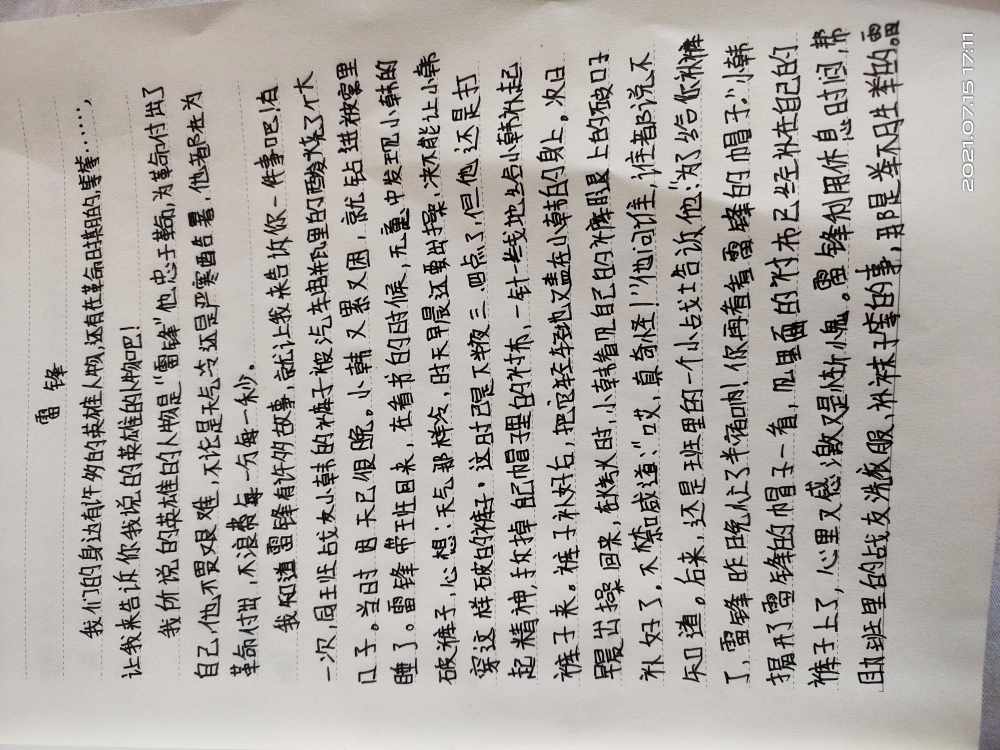 雷锋
我们的身边有许多的英雄人物,还有在革命日期的,等等……,
让我来告诉你我说的英雄的人物吧!
我所说的英雄的人物是“雷锋”他忠于革命,为革命付出了
自己,他不畏艰难,不论是天气冷还是严寒酷暑,他都在为
革命付出,不浪费每一分每一秒。
我知道雷锋有许多故事,就让我来告诉你一件事吧!有
一次,同班战友小韩的裤子被汽车电瓶里的酸烧了个大
口子。当时因天已很晚。小韩又累又困,就钻进被窝里
睡了。雷锋带班回来,在看书的时候,无意中发现小韩的
破裤子,心想:天气那样冷,时天早晨还要出操,决不能让小韩
穿这样破的裤子。这时已是下半夜三、四点了,但他还是打
起精神,拆掉自己帽子里的衬布,一针一线地给小韩补起
裤子来。裤子补好后,把它轻轻地又盖在小韩的身上。次日
早晨出操回来,在生火时,小韩看见自己的裤腿上的破口子
补好了。不禁感道:“哎,真奇怪!”他问谁,谁都说不
知道。后来,还是班里的一个小战士告诉他:“为了给你补裤
了,雷锋昨日晚上了半宿呐!你再看看雷锋的帽子。”小韩
揭开了雷锋的帽子一看,见里面的衬布已经补在自己的
裤子上了,心里又感激又是惭愧。雷锋利用休息时间,帮
助班里的战友洗衣服、补袜子等的事,那是举不胜举的。雷
2021.07.15 17:11